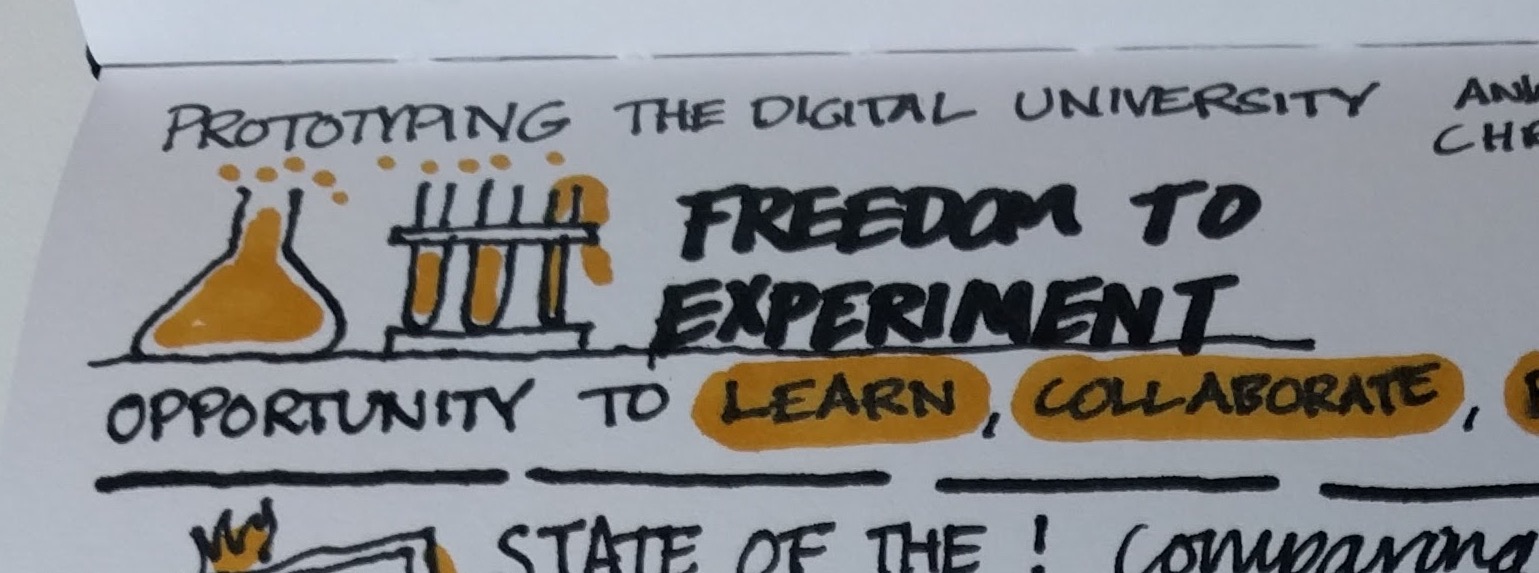 PROTOTYPING THE DIGITAL UNIVERSITY
FREEDOM TO
EXPERIMENT
OPPORTUNITY TO LEARN, COLLABORATE,
STATE OF THE ! Comparing